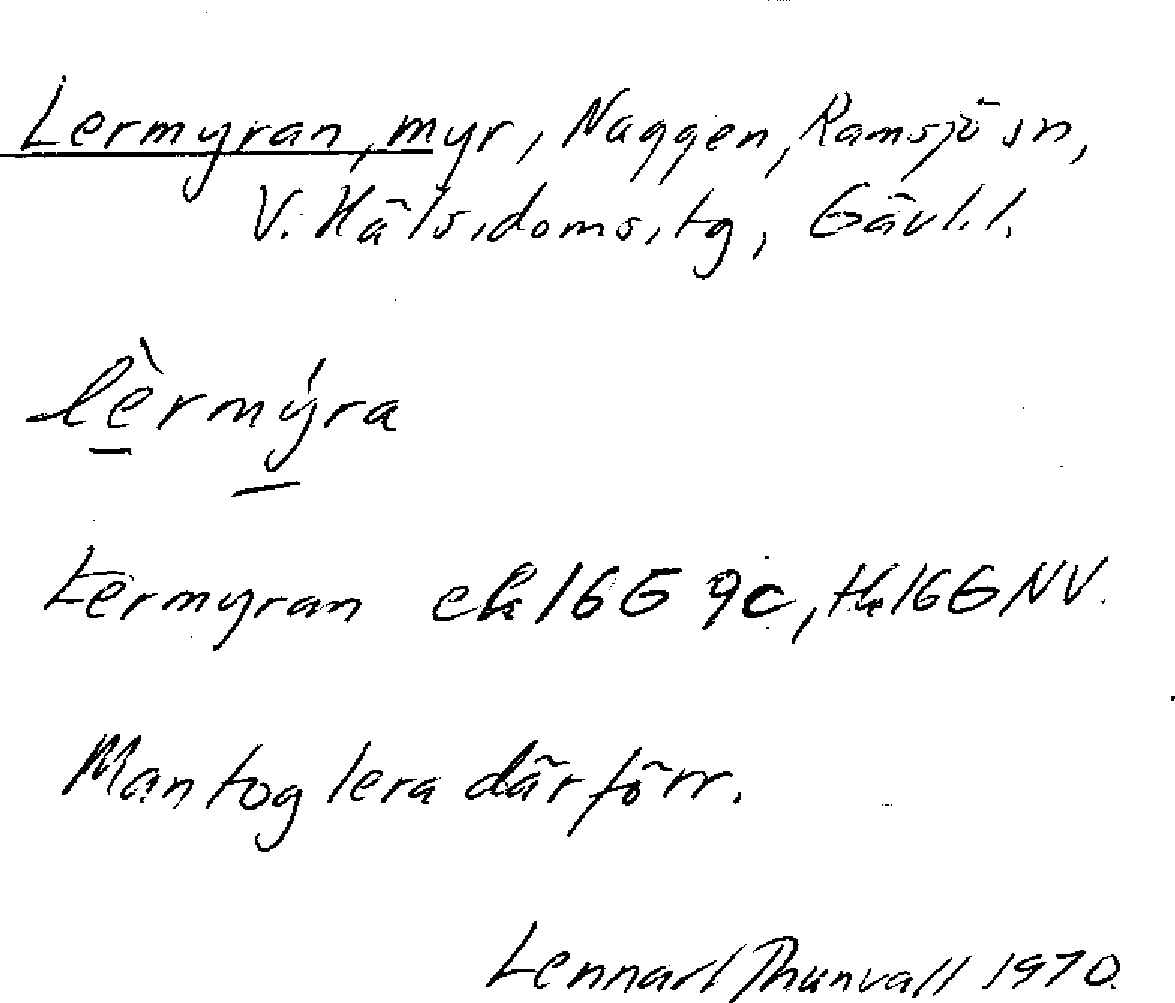 Lermyran, myr, Naggen, Ramsjö sn,
V. Häls. doms. tg, Gävl. l.
lèrmýra
Lermyran ek 16G 9c, tk 16G NV.
Man tog lera där förr.
Lennart Thunvall 1970.